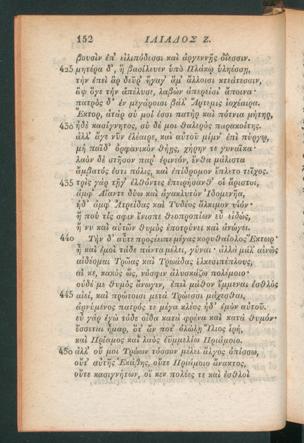 152 ΙΛΙΑΔΟΣ Ζ.
βουσὶν ἐπ' εἰλιπόδεσσι καὶ ἀργεννῇς ὀΐεσσιν.
425 μητέρα δ', ἣ βασίλευεν ὑπὸ Πλάκῳ ὑληέσσῃ,
τὴν ἐπεὶ ἂρ δεῦρ' ἤγαγ' ἅμ' ἄλλοισι κτεάτεσσιν,
ἂψ ὅγε τὴν ἀπέλυσε, λαβὼν ἀπερείσι' ἄποινα·
πατρὸς δ' ἐν μεγάροισι βάλ' Ἄρτεμις ἰοχέαιρα.
Ἕκτορ, ἀτὰρ σύ μοί ἐσσι πατὴρ καὶ πότνια μήτηρ,
430 ἠδὲ κασίγνητος, σὺ δέ μοι θαλερὸς παρακοίτης.
ἀλλ' ἄγε νῦν ἐλέαιρε, καὶ αὐτοῦ μίμν' ἐπὶ πύργῳ,
μὴ παῖδ' ὀρφανικὸν θήῃς, χήρην τε γυναῖκα·
λαὸν δὲ στῆσον παρ' ἐρινεόν, ἔνθα μάλιστα
ἀμβατός ἐστι πόλις, καὶ ἐπίδρομον ἔπλετο τεῖχος.
435 τρὶς γὰρ τῇγ' ἐλθόντες ἐπειρήσανθ' οἱ ἄριστοι,
ἀμφ' Αἴαντε δύω καὶ ἀγακλυτὸν Ἰδομενῆα,
ἠδ' ἀμφ' Ἀτρείδας καὶ Τυδέος ἄλκιμον υἱόν·
ἤ πού τίς σφιν ἔνισπε θεοπροπίων εὖ εἰδώς,
ἤ νυ καὶ αὐτῶν θυμὸς ἐποτρύνει καὶ ἀνώγει.
440 Τὴν δ' αὖτε προσέειπε μέγας κορυθαίολος Ἕκτωρ·
ἦ καὶ ἐμοὶ τάδε πάντα μέλει, γύναι· ἀλλὰ μάλ' αἰνῶς
αἰδέομαι Τρῶας καὶ Τρωάδας ἑλκεσιπέπλους,
αἴ κε, κακὸς ὥς, νόσφιν ἀλυσκάζω πολέμοιο·
οὐδέ με θυμὸς ἄνωγεν, ἐπεὶ μάθον ἔμμεναι ἐσθλὸς
445 αἰεί, καὶ πρώτοισι μετὰ Τρώεσσι μάχεσθαι,
ἀρνύμενος πατρός τε μέγα κλέος ἠδ' ἐμὸν αὐτοῦ.
εὖ γὰρ ἐγὼ τόδε οἶδα κατὰ φρένα καὶ κατὰ θυμόν·
ἔσσεται ἦμαρ, ὅτ' ἄν ποτ' ὀλώλῃ Ἴλιος ἱρή,
καὶ Πρίαμος καὶ λαὸς ἐϋμμελίω Πριάμοιο.
450 ἀλλ' οὔ μοι Τρώων τόσσον μέλει ἄλγος ὀπίσσω,
οὔτ' αὐτῆς Ἑκάβης, οὔτε Πριάμοιο ἄνακτος,
οὔτε κασιγνήτων, οἵ κεν πολέες τε καὶ ἐσθλοὶ